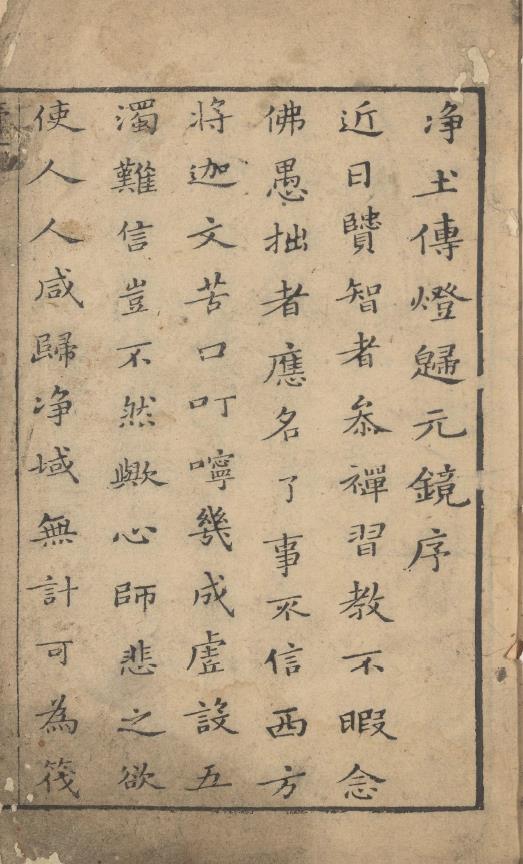 净土傳燈歸元鏡序
近日贒智者叅禪習教不暇念
佛愚拙者應名了事不信西方
將迦文苦口叮嚀幾成虗設五
濁難信豈不然歟心師悲之欲
使人人咸歸净域無計可為筏